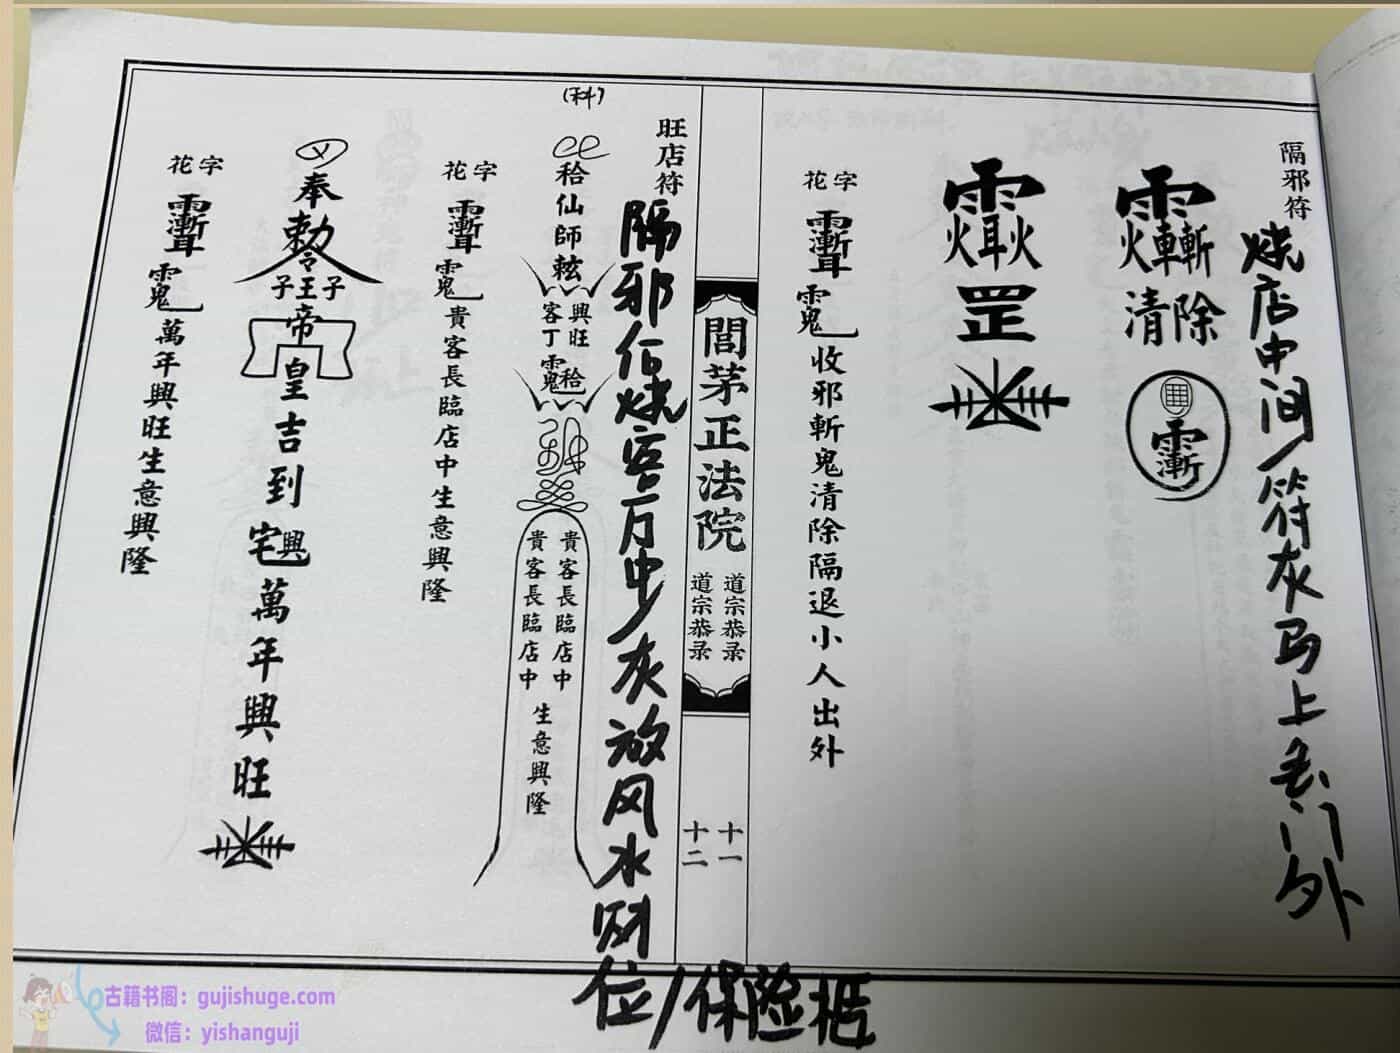 隔邪符
烧店中间/符灰马上丢门外
清除
罡
花字
收邪斬鬼清除隔退小人出外
閭茅正法院
道宗恭录
道宗恭录
十一
十二
旺店符
隔邪后烧客厅中/灰放风水财位/保险柜
(科)
仙師
興旺
客丁
貴客長臨店中
貴客長臨店中
生意興隆
花字
貴客長臨店中生意興隆
奉勅令
子王子
帝皇吉到宅興萬年興旺
花字
萬年興旺生意興隆
古籍书阁：gujishuge.com
微信：yishanguji